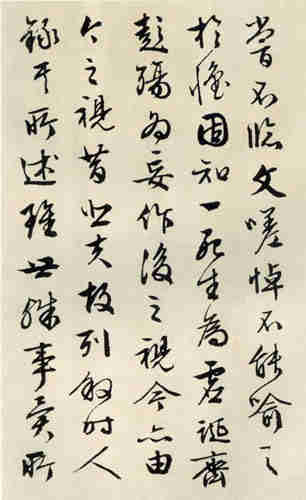 嘗不臨文嗟悼不能喻之
於懷固知一死生為虛誕齊
彭殤為妄作後之視今亦由
今之視昔悲夫故列叙時人
錄其所述雖世殊事異所